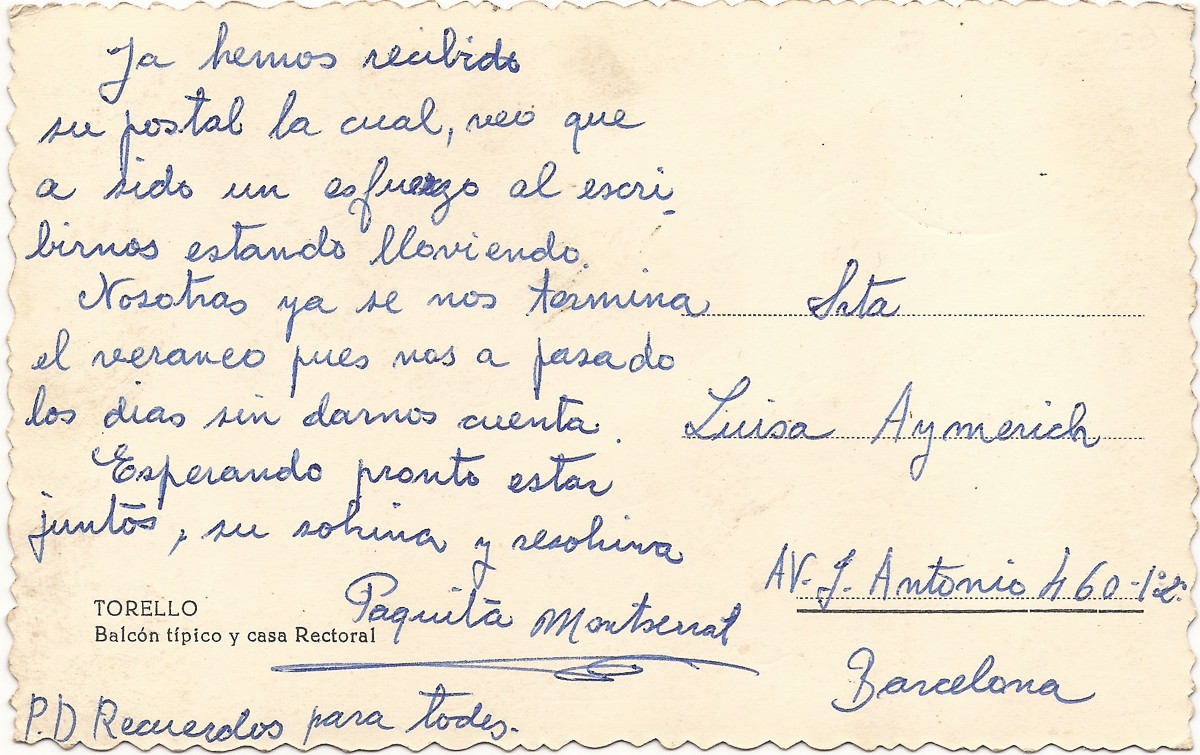 Ya hemos recibido
su postal la cual, veo que
a sido un esfuerzo al escri-
birnos estando lloviendo.
Nosotras ya se nos termina
el veraneo pues nos a pasado
los dias sin darnos cuenta.
Esperando pronto estar
juntos, su sobina y resobina
Paquita Montserrat
TORELLO
Balcón típico y casa Rectoral
P.D Recuerdos para todos.
Srta
Luisa Aymerich
AV. J. Antonio 460-1º2ª
Barcelona